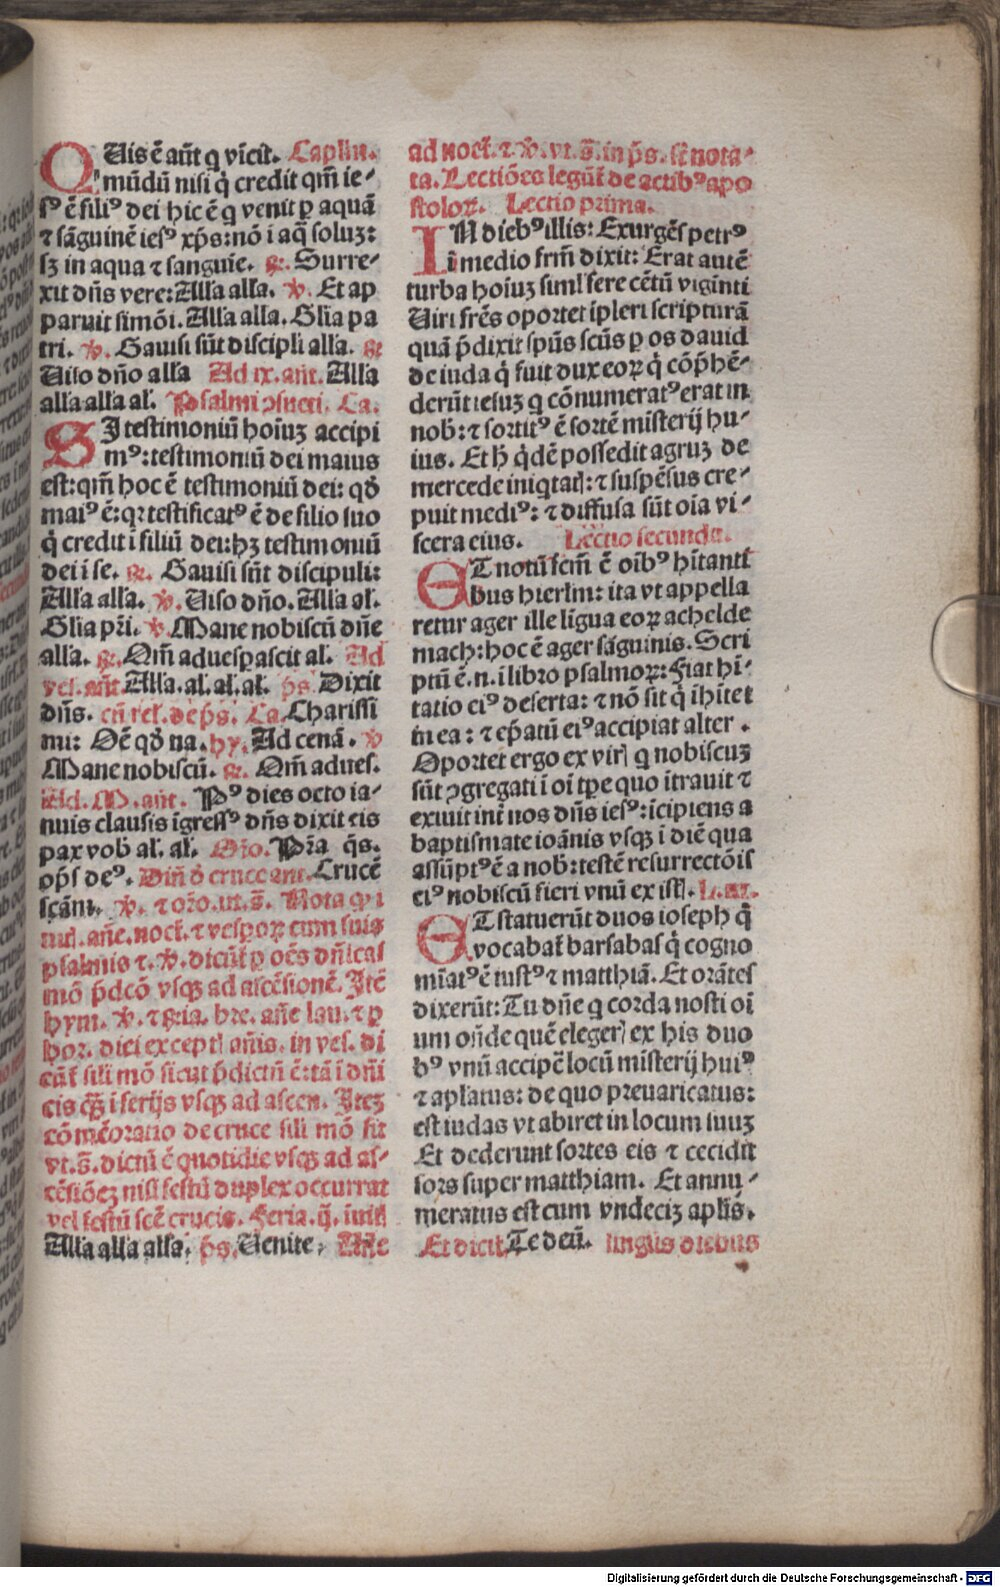 QUis ē aūt q vīcit. Caplm.
mūdū nisi q̇ credit qm̄ ie⸗
sꝰ ē filiꝰ dei hic ē q venit ꝑ aquā
⁊ sāguinē iesꝰ xp̄s: nō ī aq̄ soluꝫ:
sꝫ in aqua ⁊ sanguīe. ℟. Surre⸗
xit dn̄s vere: Alľa alľa. ℣. Et ap
paruit simōi. Alľa alľa. Glīa pa
tri. ℣. Gauisi sūt discipľi alľa. ℟
Uiso dn̄o alľa Ad ix. an̄t. Alľa
alľa alľa al̄. Psalmi ꝯsueti. Ca.
SI testimoniū hoīuꝫ accipi
mꝰ: testimoniū dei maius
est: qm̄ hoc ē testimoniū dei: qđ
maiꝰ ē: qꝛ testificatꝰ ē de filio suo
q̇ credit ī filiū dei: hꝫ testimoniū
dei ī se. ℟. Gauisi sūt discipuli:
Alľa alľa. ℣. Uiso dn̄o. Alľa al̄.
Glīa pr̄i. ℣. Mane nobiscū dn̄e
alľa. ℟. Qm̄ aduesꝑascit al̄. Ad
ves. an̄t. Alľa. al̄. al̄. al̄. p̄s. Dixit
dn̄s. cū rel̄. de p̄s. Ca. Charissi
mi: Oē qđ na. hy. Ad cenā. ℣
Mane nobiscū. ℟. Qm̄ adues.
Ad. M. an̄t. Pꝰ dies octo ia⸗
nuis clausis īgressꝰ dn̄s dixit eis
pax vob̄ al̄. al̄. Or̄o. Pr̄a q̄s.
op̄s deꝰ. Diń ď cruce ant. Crucē
sc̄am. ℣. ⁊ or̄o. ut. s̄. Nota ꝙ i
nul. an̄e. noct̄. ⁊ vesꝑoꝝ cum suis
psalmis ⁊. ℣. dicūt̄ ꝑ oēs dn̄icas
mō p̄dcō vsqꝫ ad ascēsionē. Itē
hym. ℣. ⁊ gīa. bre. an̄e lau. ⁊ ꝑ
hor. diei exceptꝭ an̄is. in ves. di
cūt̄ sili mō sicut p̄dictū ē: tā ī dn̄i
cis qꝫ̄ ī ferijs vsqꝫ ad ascen. Iteꝫ
cōmēoratio de cruce sili mō fit
vt. s̄. dictū ē quotidie vsqꝫ ad as⸗
cēsiōeꝫ nisi festū duplex occurrat
vel festū scē crucis. Feria. ij. īuit̄
Alľa alľa alľa. p̄s. Uenite. An̄e
ad noct̄. ⁊. ℣. vt. s̄. in p̄s. st̄ nota⸗
ta. Lectiōes legūt̄ de actibꝰ apo
stoloꝝ. Lectio prima.
IN diebꝰ illis: Exurgēs petrꝰ
ī medio frm̄ dixit: Erat autē
turba hoīuꝫ siml̄ fere cētū vigīnti
Uiri frēs oportet īpleri scripturā
quā p̄dixit spūs scūs ꝑ os dauid
de iuda q̇ fuit dux eoꝝ q̇ cōp̄hē⸗
derūt iesuꝫ q cōnumeratꝰ erat in
nob̄: ⁊ sortitꝰ ē sortē misterij hu⸗
ius. Et h̄ q̇dē possedit agruꝫ de
mercede iniqtatꝭ: ⁊ suspēsus cre⸗
puit mediꝰ: ⁊ diffusa sūt oīa vi⸗
scera eius. Lectio secunda.
ET notū fcm̄ ē oībꝰ hītanti
bus hierlm̄: ita vt appella
retur ager ille ligua eoꝝ achelde
mach: hoc ē ager sāguinis. Scri
ptū ē. n. ī libro psalmoꝝ: Fiat hī⸗
tatio eiꝰ deserta: ⁊ nō sit q̇ ihītet
in ea: ⁊ ep̄atū eiꝰ accipiat alter.
Oportet ergo ex virꝭ q nobiscuꝫ
sūt ꝯgregati ī oī tꝑe quo ītrauit ⁊
exiuit int̄ nos dn̄s iesꝰ: īcipiens a
baptismate ioānis vsqꝫ ī diē qua
assūptꝰ ē a nob̄: testē resurrectōis
eiꝰ nobiscū fieri vnū ex istꝭ. L. iij.
ET statuerūt duos ioseph q̇
vocabat̄ barsabas q̇ cogno
mīatꝰ ē iustꝰ ⁊ matthiā. Et orātes
dixerūt: Tu dn̄e q corda nosti oī
um on̄de quē elegerꝭ ex his duo
bꝰ vnū accipē locū misterij huiꝰ
⁊ apl̄atus: de quo preuaricatus:
est iudas vt abiret in locum suuꝫ
Et dederunt sortes eis ⁊ cecidit
sors super matthiam. Et annu⸗
meratus est cum vndeciꝫ apl̄is.
Et dicit̄ Te deū. singlis diebus
Digitalisierung gefördert durch die Deutsche Forschungsgemeinschaft - DFG